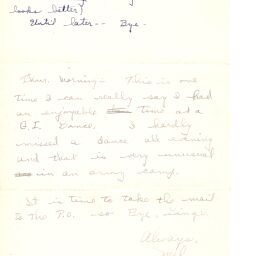 looks better)
Until later -- Bye.
Thur. Morning - This is one
time I can really say I had
an enjoyable time at a
G.I. Dance, I hardly
missed a dance all evening
and that is very unusual
in an army camp.
It is time to take the mail
to the P.O. so Bye,
Always,